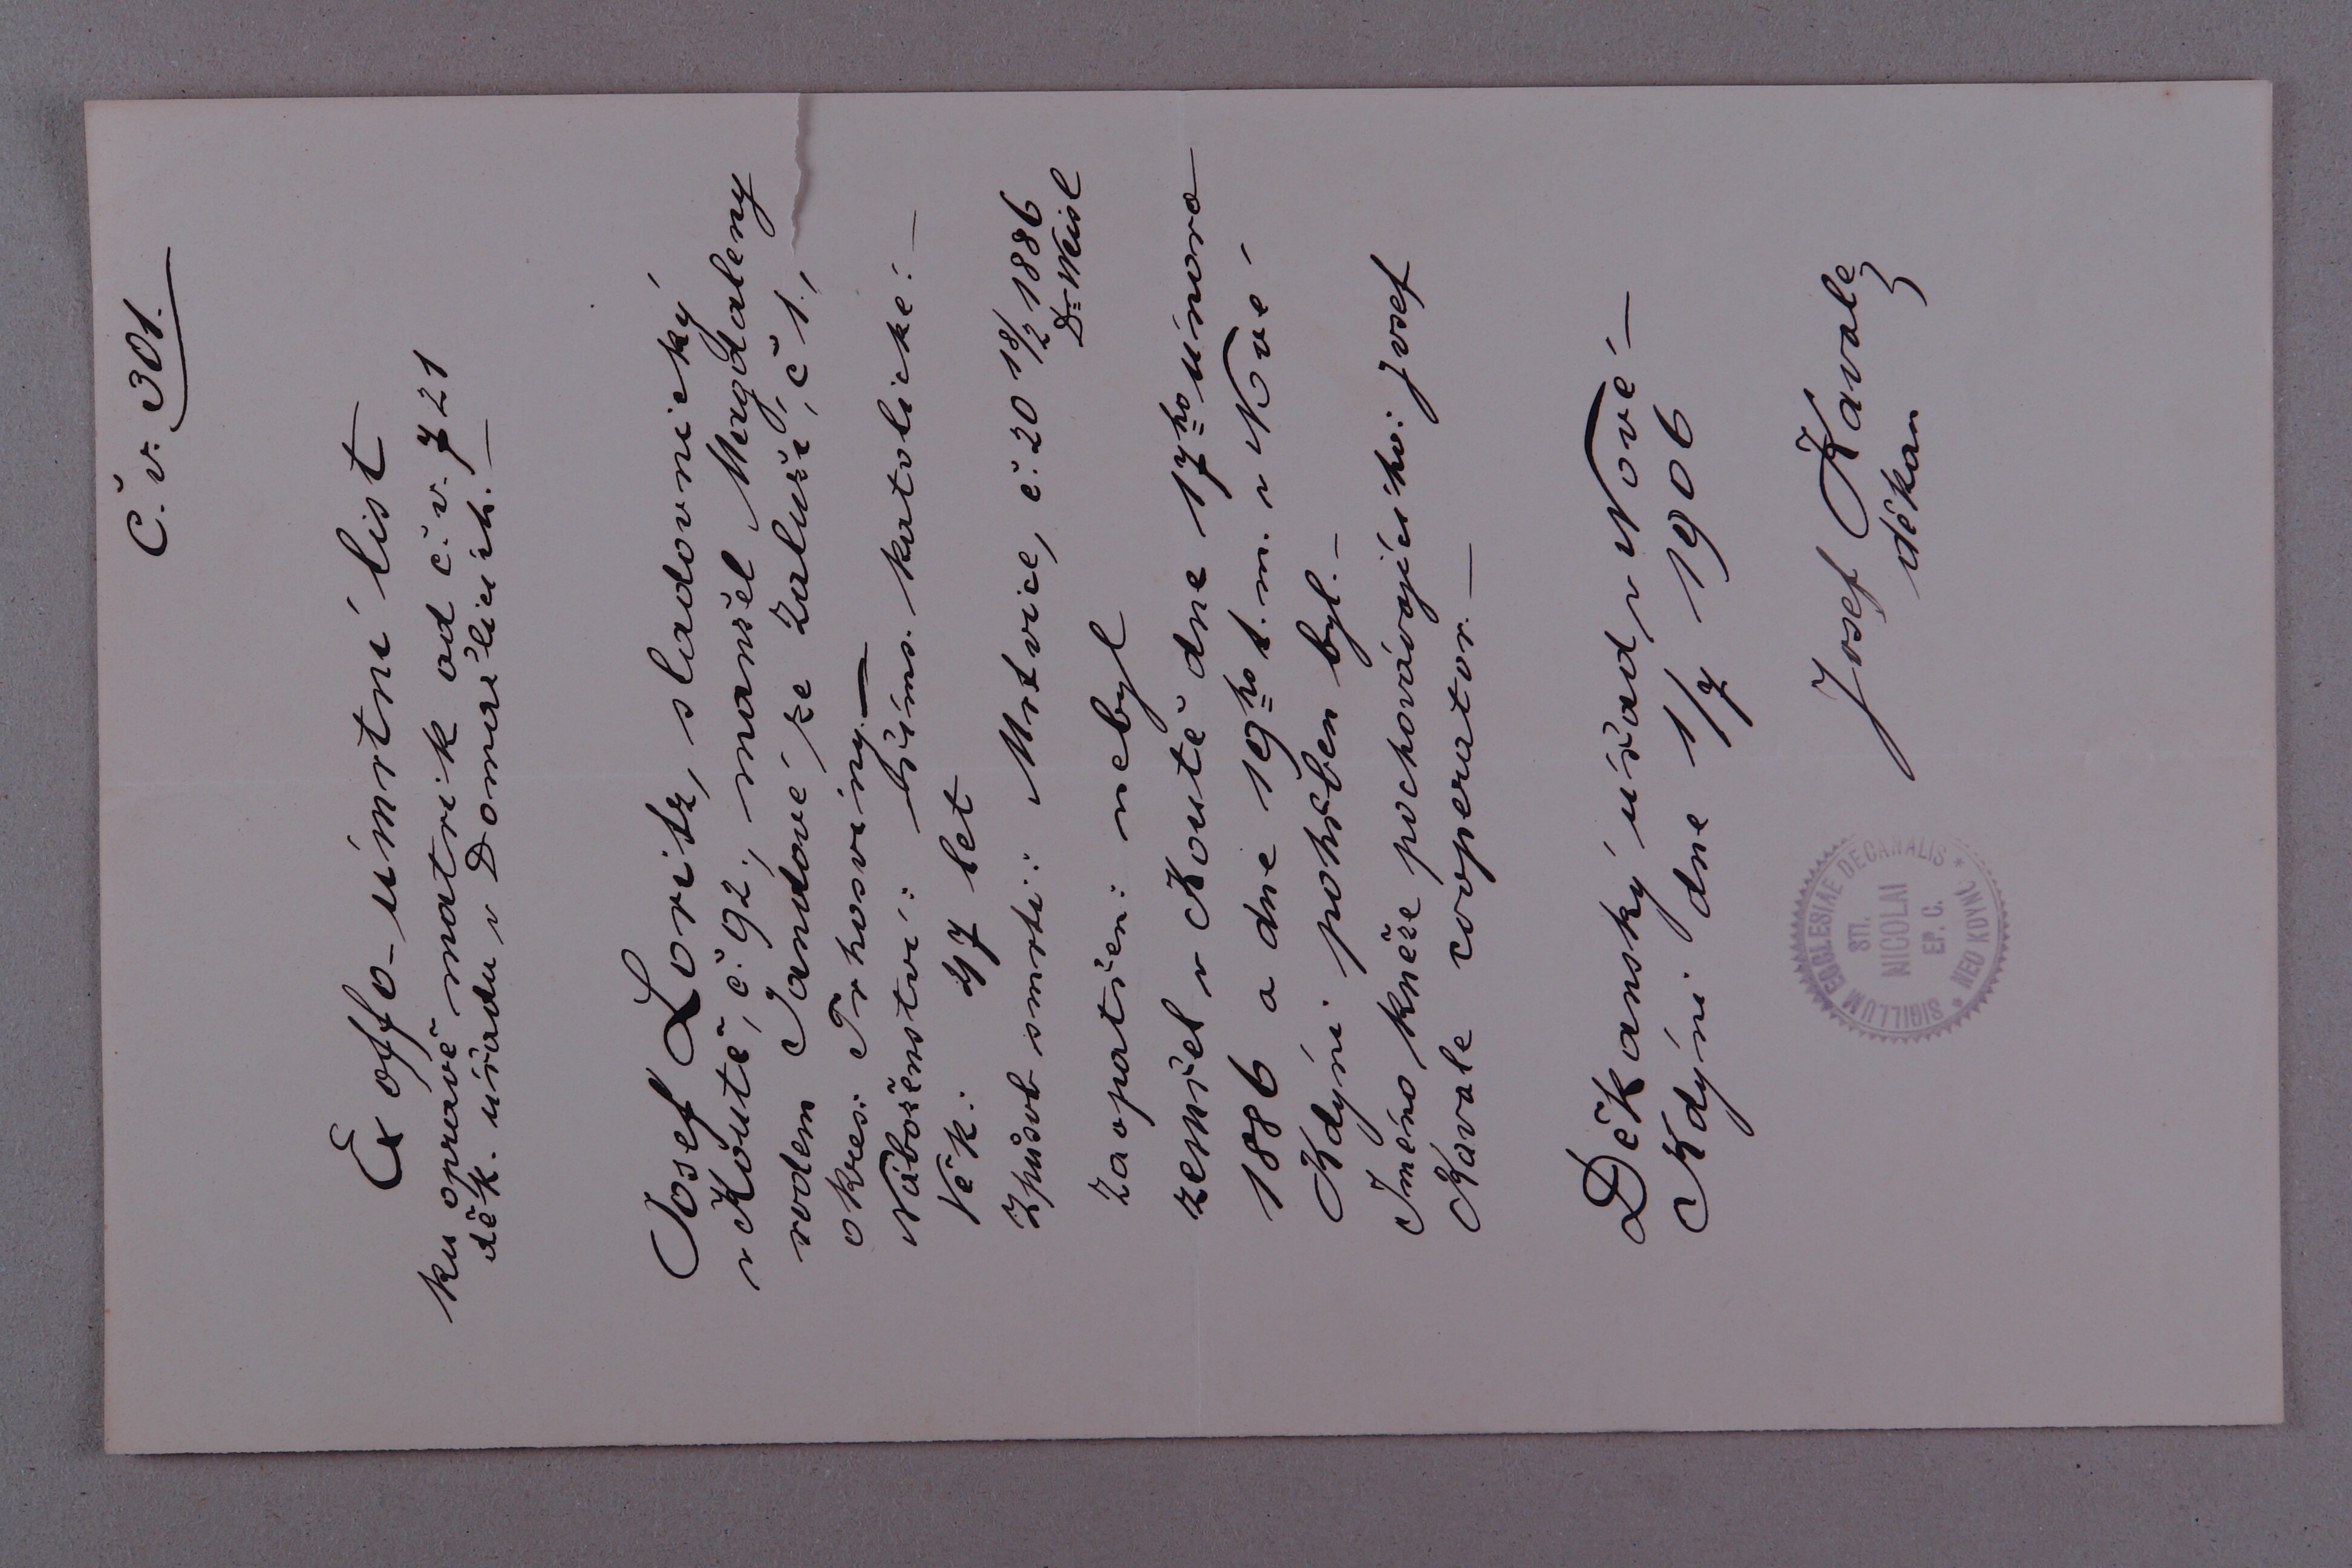 Č. v. 301.
Ex offo-úmrtní list
ku opravě matrik od č. v. 721
děk. úřadu v Domažlicích. —
Josef Loritz, sladovnický
v Koutě, č. 92., manžel Magdaleny
rodem Jandové, ze Zaluží, č 1.,
okres: Trhosviny. —
Náboženství: Říms. katolické: —
Věk: 47 let
Způsob smrti: Mrtvice, č. 20 18/2 1886
Dr Weisl
Zaopatřen: nebyl
zemřel v Koutě dne 17ho února
1886 a dne 19ho t. m. v Nové
Kdýni pohřben byl. —
Jméno kněze pochovávajícího: Josef
Kavale cooperator. —
Děkanský úřad v Nové —
Kdýni dne 1/7 1906
Josef Kavale
děkan
SIGILLUM ECCLESIAE DECANALIS * NEO KDYNII *
STI.
NICOLAI
EP. C.